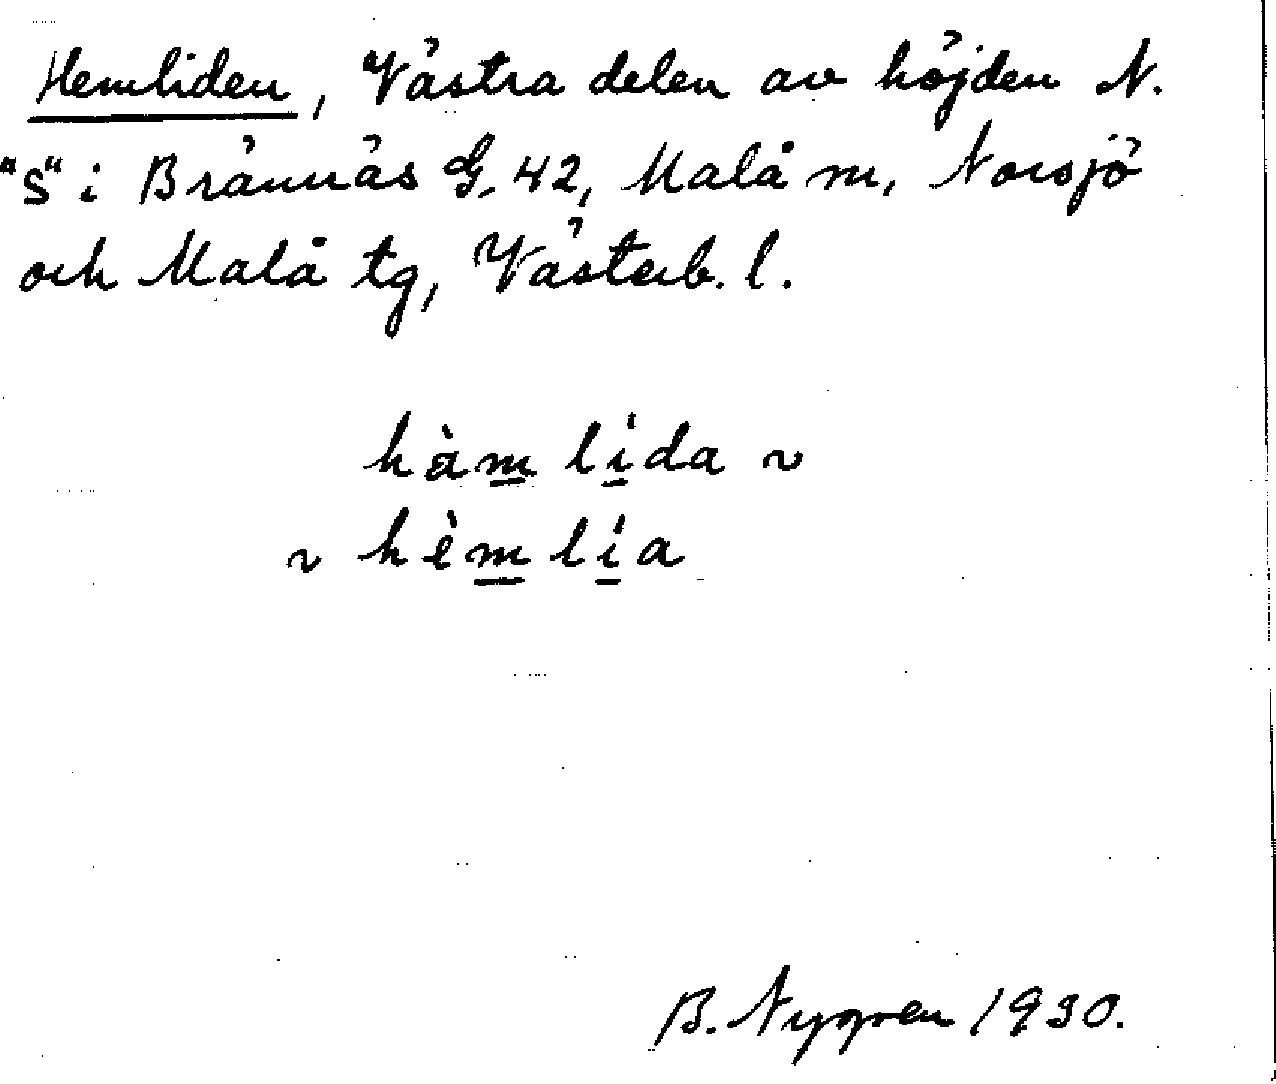 Hemliden, Västra delen av höjden N.
"S" i Brännäs G. 42, Malå m, Norsjö
och Malå tg, Västerb. l.
hàm lída ~
~ hèm lía
B. Nygren 1930.